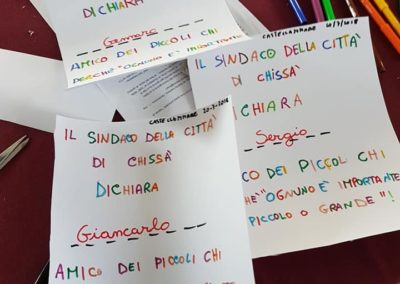 DICHIARA
Gennaro
AMICO DEI PICCOLI CHI
PERCHÈ "OGNUNO È IMPORTANTE
CASTELLAMMARE 20/7/2018
IL SINDACO DELLA CITTÀ
DI CHISSÀ
DICHIARA
Sergio
CO DEI PICCOL CHI
HÈ "OGNUNO È IMPORTANTE
PICCOLO O GRANDE"!
CASTELLAMMARE 20-7-2018
IL SINDACO DELLA CITTÀ
DI CHISSÀ
DICHIARA
Giancarlo
AMICO DEI PICCOLI CHI